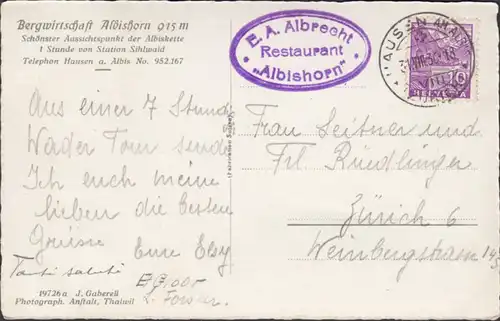 Bergwirtschaft Albishorn 915 m
Schönster Aussichtspunkt der Albiskette
1 Stunde von Station Sihlwald
Telephon Hausen a. Albis No. 952.167
E. A. Albrecht
Restaurant
"Albishorn"
HAUSEN AM ALBIS
HELVETIA
Aus einer 7 Stund.
Wader Tour sende
Ich euch meine
lieben die besten
Grüsse Eure Elsy
Tanti saluti
Frau Seitner und
Frl. Rüedlinger
Zürich 6
Weinbergstrasse
19726a J. Gaberell
Photograph. Anstalt, Thalwil